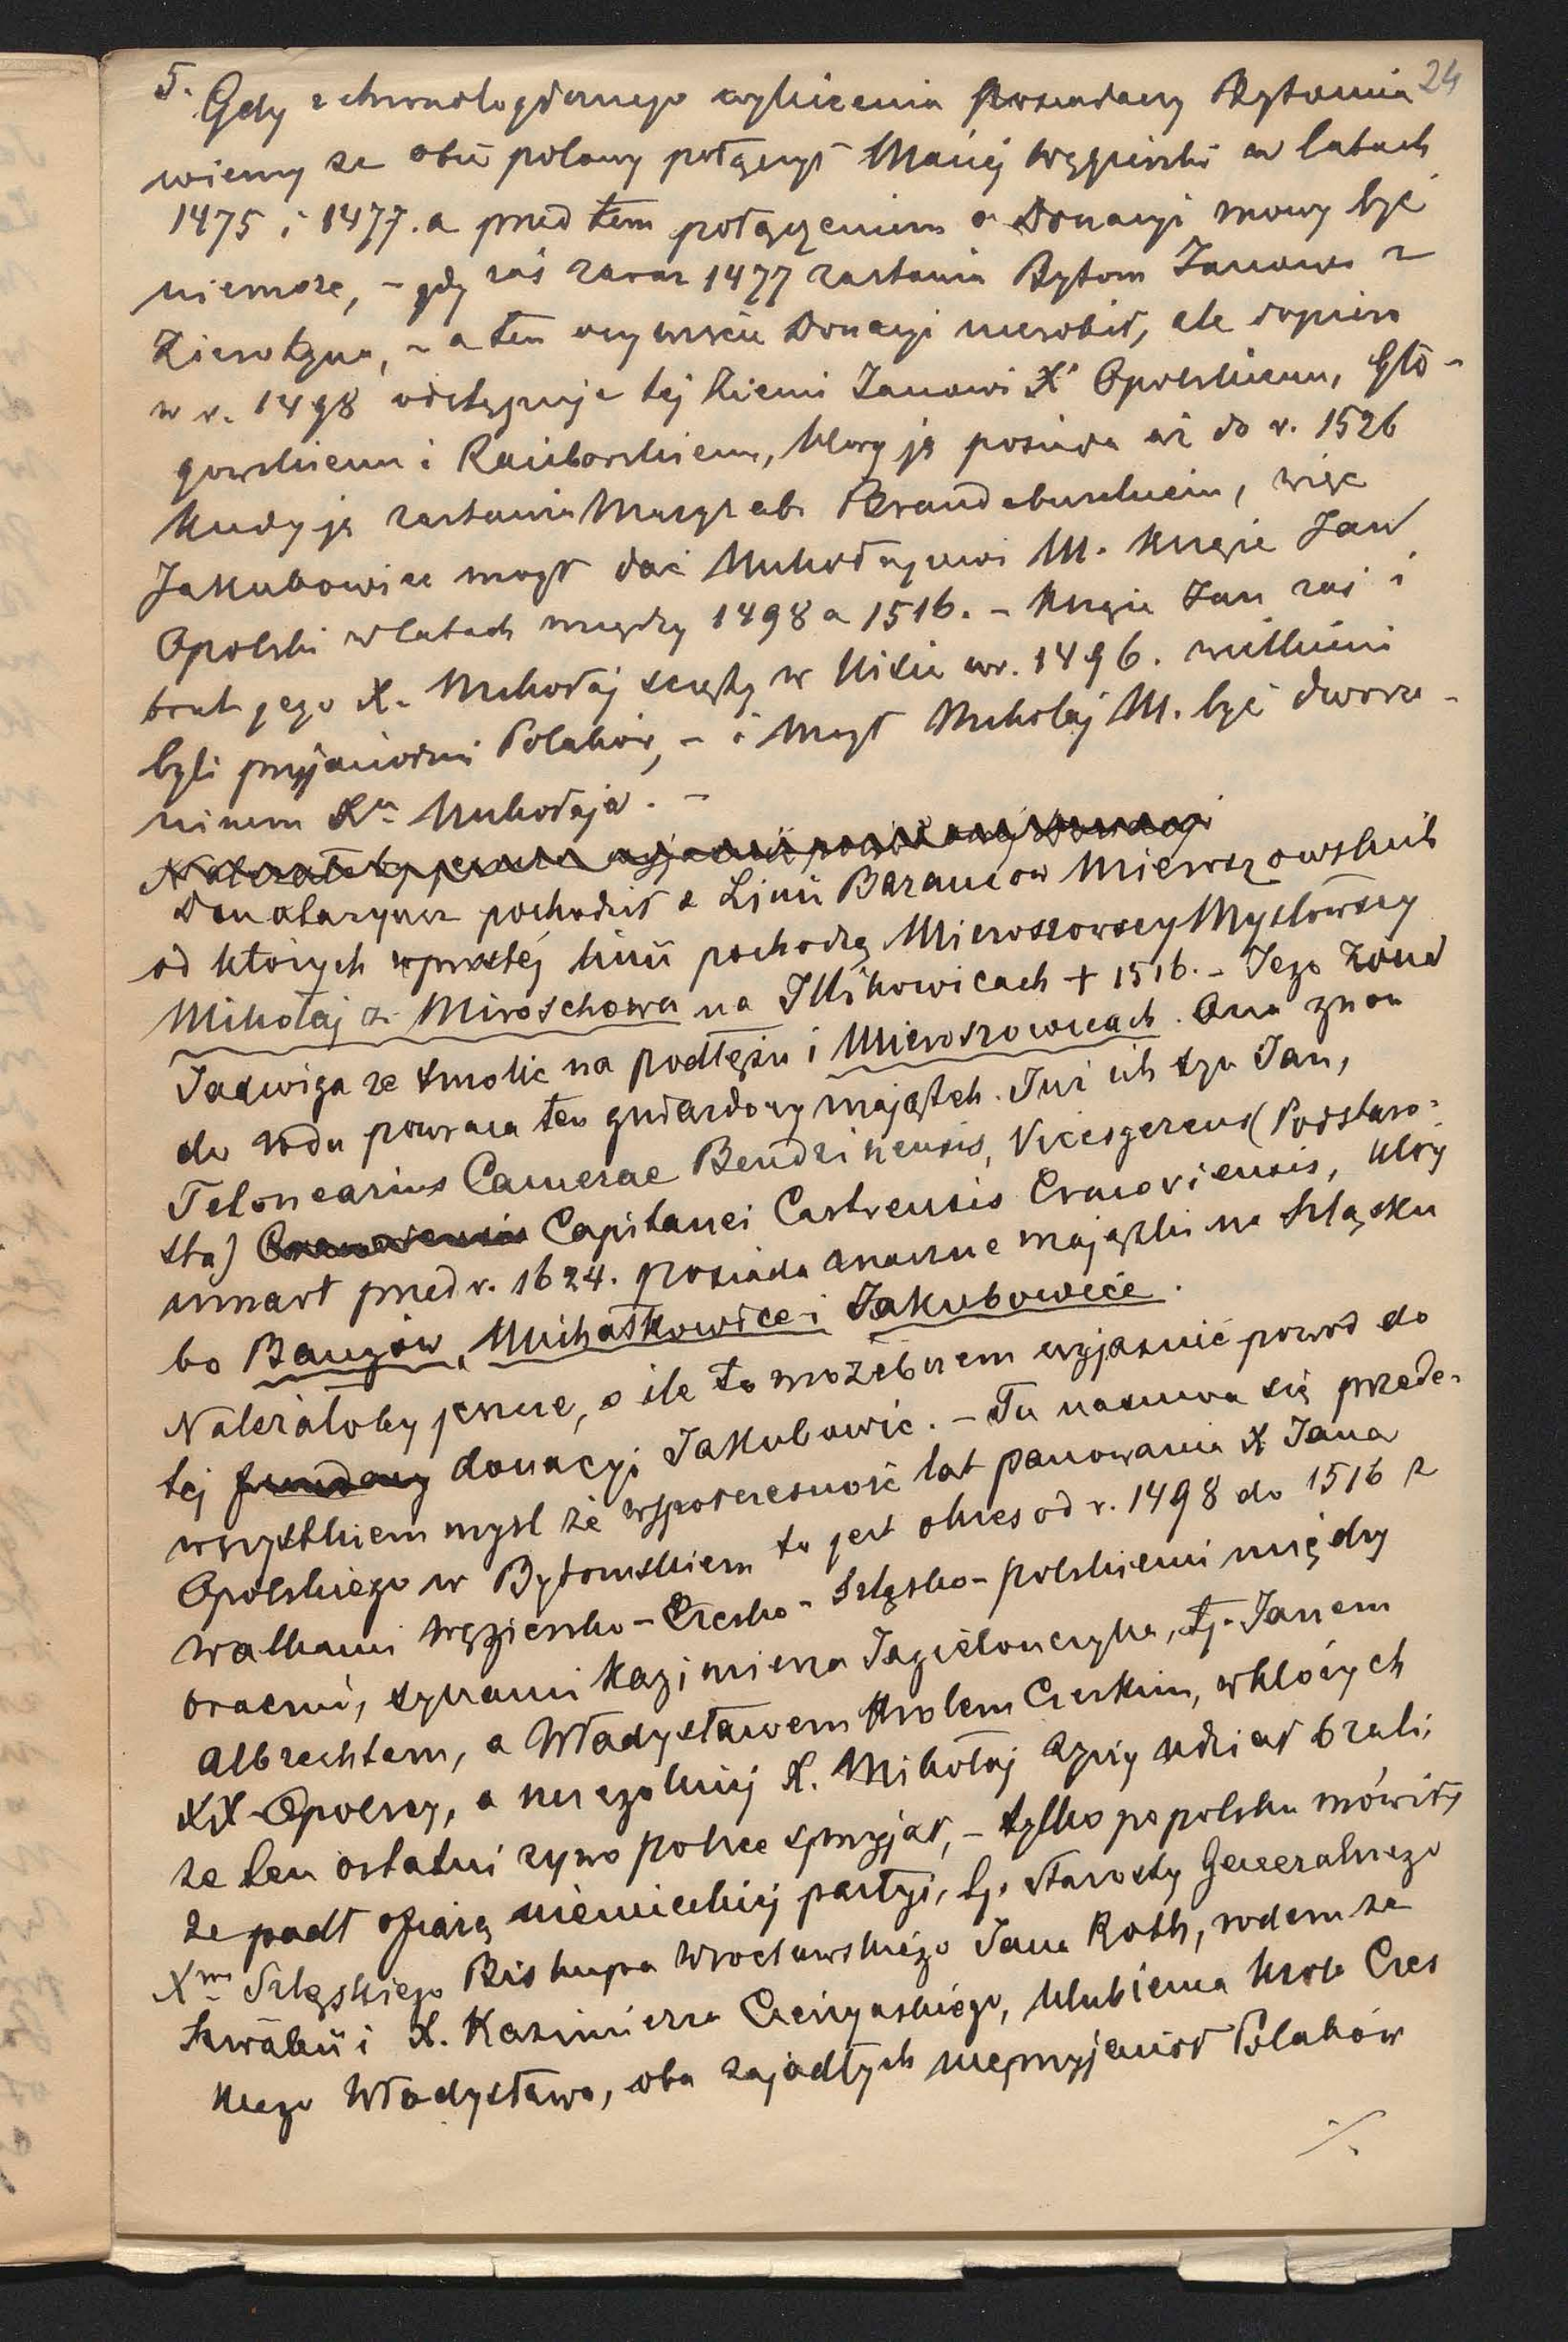 5. 24
Gdy z chronologicznego wyliczenia posiadaczy Bytomia
wiemy ze obie połowy połączył Maciej węgierski w latach
1475 i 1477. a przed tem połączeniem o Donacyi mowy być
niemoze, – gdy zaś zaraz 1477 zastawia Bytom Janowi z
Zierotyna, – a ten oczywiście Donacyi nierobił, ale dopiero
w r. 1498 odstępuje tej Ziemi Janowi X Opolskiemu, Gło-
gowskiemu i Raciborskiemu, który ją posiada aż do r. 1526
kiedy ją zastawia Margrab. Brandeburskiem, więc
Jakubowice mógł dać Mikołajowi M. Książe Jan
Opolski w latach między 1498 a 1516. – Książe Jan zaś i
brat jego X. Mikołaj ścięty w Nisie w r. 1496. wielkimi
byli przyjaciółmi Polaków, – i mógł Mikołaj M. być dworza-
ninem Xa Mikołaja. –
Należałoby jeszcze wyjaśnić powód tej Donacyi
Donataryusz pochodził z Linii Baranów Mieroszowskich
od których wprostej linii pochodzą Mieroszowscy Mysłowscy
Mikołaj z Miroschowa na Illikowicach + 1516. – Jego żona
Jadwiga ze Smolic na podłężu i Mieroszowicach. Ona znou
do rodu powraca ten gniazdowy majątek. Już ich syn Jan,
Telonearius Camerae Bendzinensis, Vicesgerens (Podstaro-
sta) Cracoviensis Capitanei Castrensis Cracoviensis, który
umarł przed r. 1624. posiada znaczne majątki na Szląsku
bo Bańgów, Michałkowice i Jakubowice.
Należałoby jeszcze, o ile to możebnem wyjaśnić powód do
tej donacyi Jakubowic. – Tu nasuwa się przede-
wszystkiem mysl że współczesność lat panowania X Jana
Opolskiego w Bytomskiem to jest okres od r. 1498 do 1516 z
walkami węgiersko – Czesko – szląsko – polskiemi między
bracmi, synami Kazimierza Jagielonczyka, tj. Janem
Albrechtem, a Władysławem Krolem Czeskim, w których
XX Opolscy, a szczególniej X. Mikołaj czynny udział brali;
ze ten ostatni zywo polsce sprzyjał, – tylko po polsku mówił,
ze padł ofiarą niemieckiej partyi, tj. Starosty Generalnego
Xwa Szląskiego Biskupa Wrocławskiego Jana Roth, rodem ze
Szwabii i X. Kazimierza Cieszyńskiego, ulubienca Krola Czes
kiego Władysława, oba zajadłych nieprzyjaciół Polaków
./.